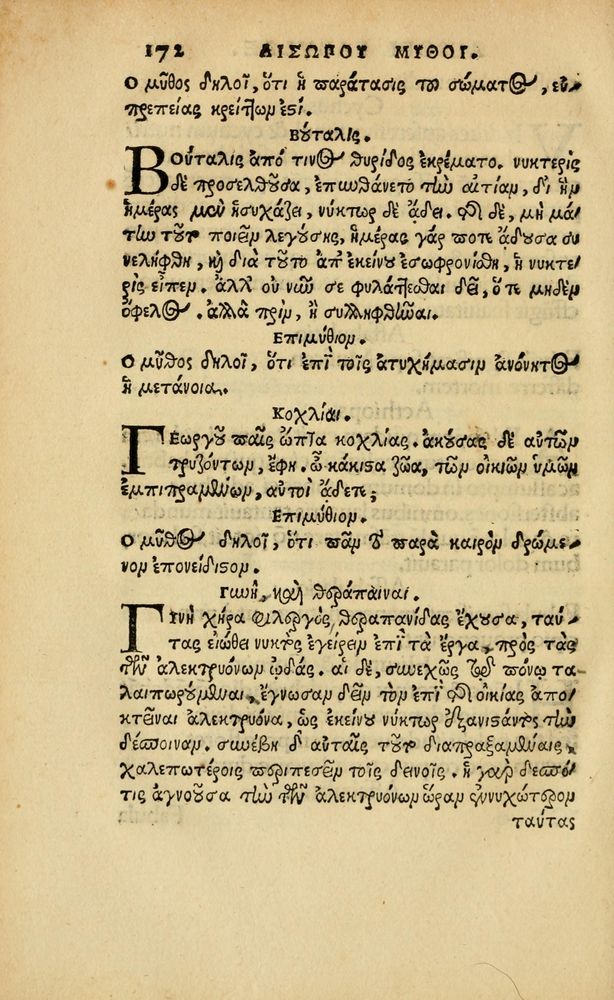 172 ΑΙΣΩΠΟΥ ΜΥΘΟΙ.
Ο μῦθος δηλοῖ, ὅτι ἡ παράτασις τοῦ σώματος, εὐ-
πρεπείας κρείττων ἐστί.
Βούταλις.
Βούταλις ἀπό τινος θυρίδος ἐκρέματο. νυκτερὶς
δὲ προσελθοῦσα, ἐπυνθάνετο τὴν αἰτίαν, δι ἣν
ἡμέρας μὲν ἡσυχάζει, νύκτωρ δὲ ᾄδει. τῆς δὲ, μὴ μά-
την τοῦτο ποιεῖν λεγούσης, ἡμέρας γάρ ποτε ᾄδουσα συ
νελήφθη, καὶ διὰ τοῦτο ἀπ' ἐκείνου ἐσωφρονίσθη, ἡ νυκτε-
ρὶς εἶπεν. ἀλλ' οὐ νῦν σε φυλάττεσθαι δεῖ, ὅτε μηδὲν
ὄφελος. ἀλλὰ πρὶν, ἢ συλληφθῆναι.
Επιμύθιον.
Ο μῦθος δηλοῖ, ὅτι ἐπὶ τοῖς ἀτυχήμασιν ἀνόνητος
ἡ μετάνοια.
Κοχλίαι.
Γεωργοῦ παῖς ὤπτα κοχλίας. ἀκούσας δὲ αὐτῶν
τρυζόντων, ἔφη. ὦ κάκιστα ζῶα, τῶν οἰκιῶν ὑμῶν
ἐμπιπραμένων, αὐτοὶ ᾄδετε;
Επιμύθιον.
Ο μῦθος δηλοῖ, ὅτι πᾶν τὸ παρὰ καιρὸν δρώμε-
νον ἐπονείδιστον.
Γυνὴ, καὶ θεράπαιναι.
Γυνὴ χήρα φίλεργὸς, θεραπαινίδας ἔχουσα, ταύ-
τας εἰώθει νυκτὸς ἐγείρειν ἐπὶ τὰ ἔργα, πρὸς τὰς
τῶν ἀλεκτρυόνων ᾠδάς. αἱ δὲ, συνεχῶς τῷ πόνῳ τα-
λαιπωρούμεναι, ἔγνωσαν δεῖν τὸν ἐπὶ τῆς οἰκίας ἀπο-
κτεῖναι ἀλεκτρυόνα, ὡς ἐκείνου νύκτωρ ἐξανιστάντος τὴν
δέσποιναν. συνέβη δ' αὐταῖς τοῦτο διαπραξαμέναις,
χαλεπωτέροις περιπεσεῖν τοῖς δεινοῖς. ἡ γὰρ δεσπό-
τις ἀγνοοῦσα τὴν τῶν ἀλεκτρυόνων ὥραν ἐννυχώτερον
ταύτας